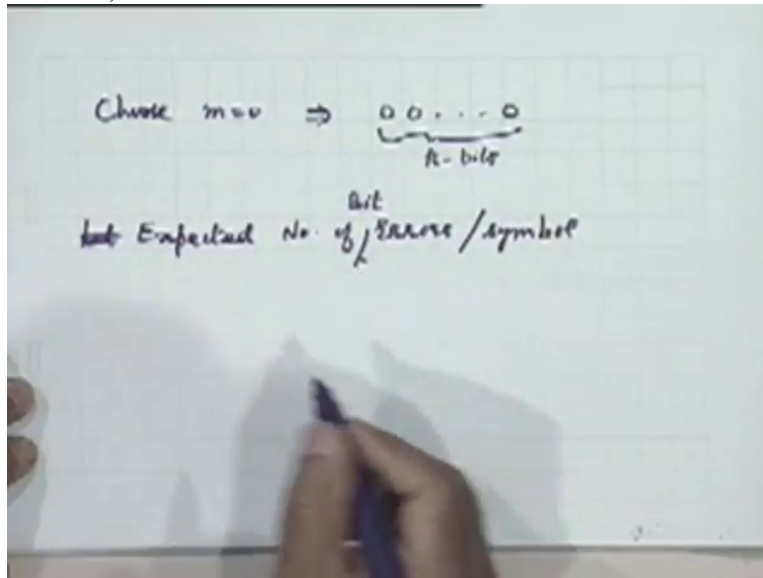 Choose m=0 ⇒ 0 0 . . . 0
k-bits
Bit
Expected No. of Errors / symbol